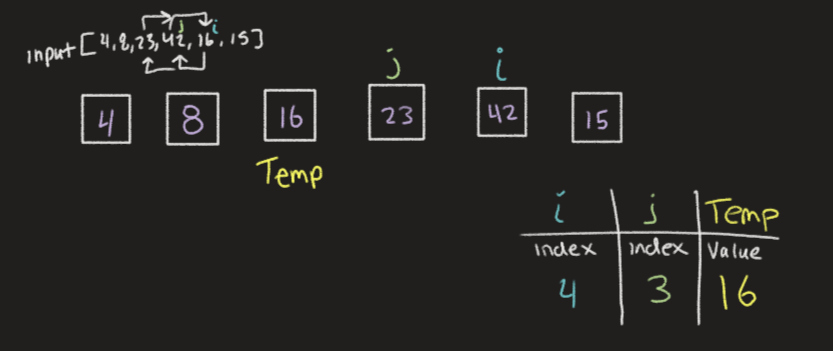 j i
input [4,8,23,42,16,15]
j i
4 8 16 23 42 15
Temp
i j Temp
index index Value
4 3 16